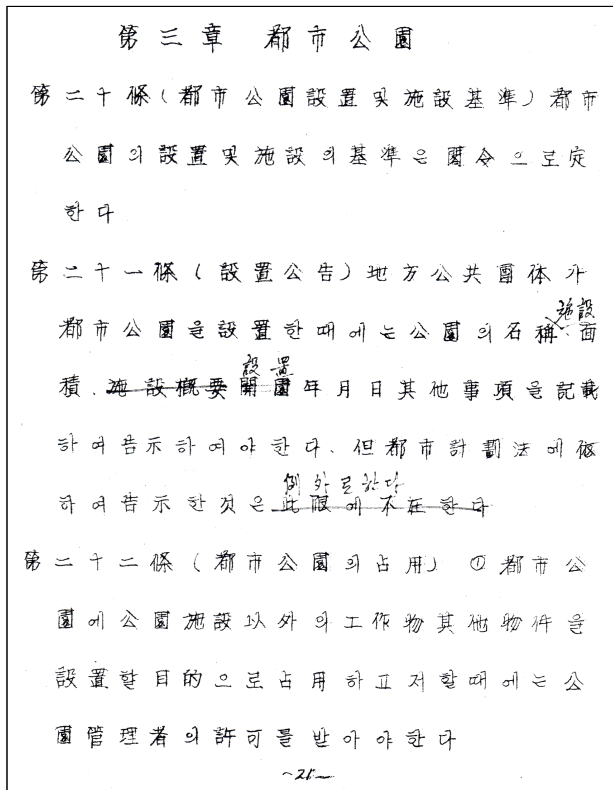 第三章 都市公園
第二十條(都市公園設置및施設基準)都市
公園의設置및施設의基準은閣令으로定
한다
第二十一條(設置公告)地方公共團体가
施設
都市公園을設置한때에는公園의名稱、面
設置
積、施設槪要開園年月日其他事項을記載
하여告示하여야한다、但都市計劃法에依
例外로한다
하여告示한것은此限에不在한다
第二十二條(都市公園의占用) ①都市公
園에公園施設以外의工作物其他物件을
設置할目的으로占用하고저할때에는公
園管理者의許可를받아야한다
~21~